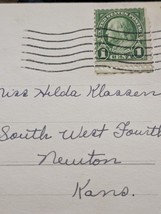 1 1
Miss Hilda Klassen
South West Fourth
Newton
Kans.